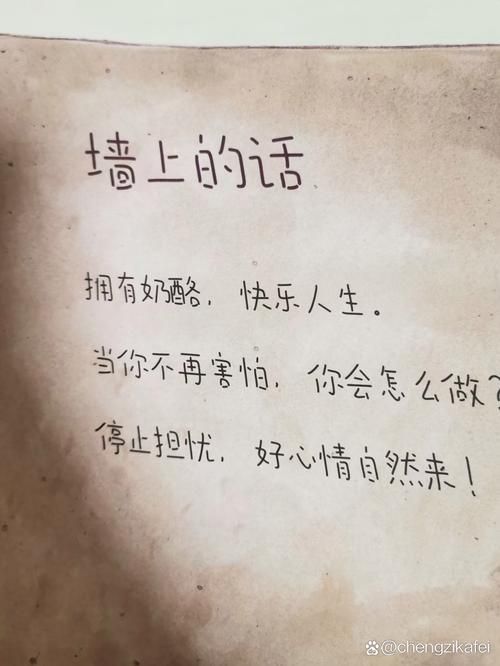 墙上的话
拥有奶酪，快乐人生。
当你不再害怕，你会怎么做？
停止担忧，好心情自然来！
@chengzikafei